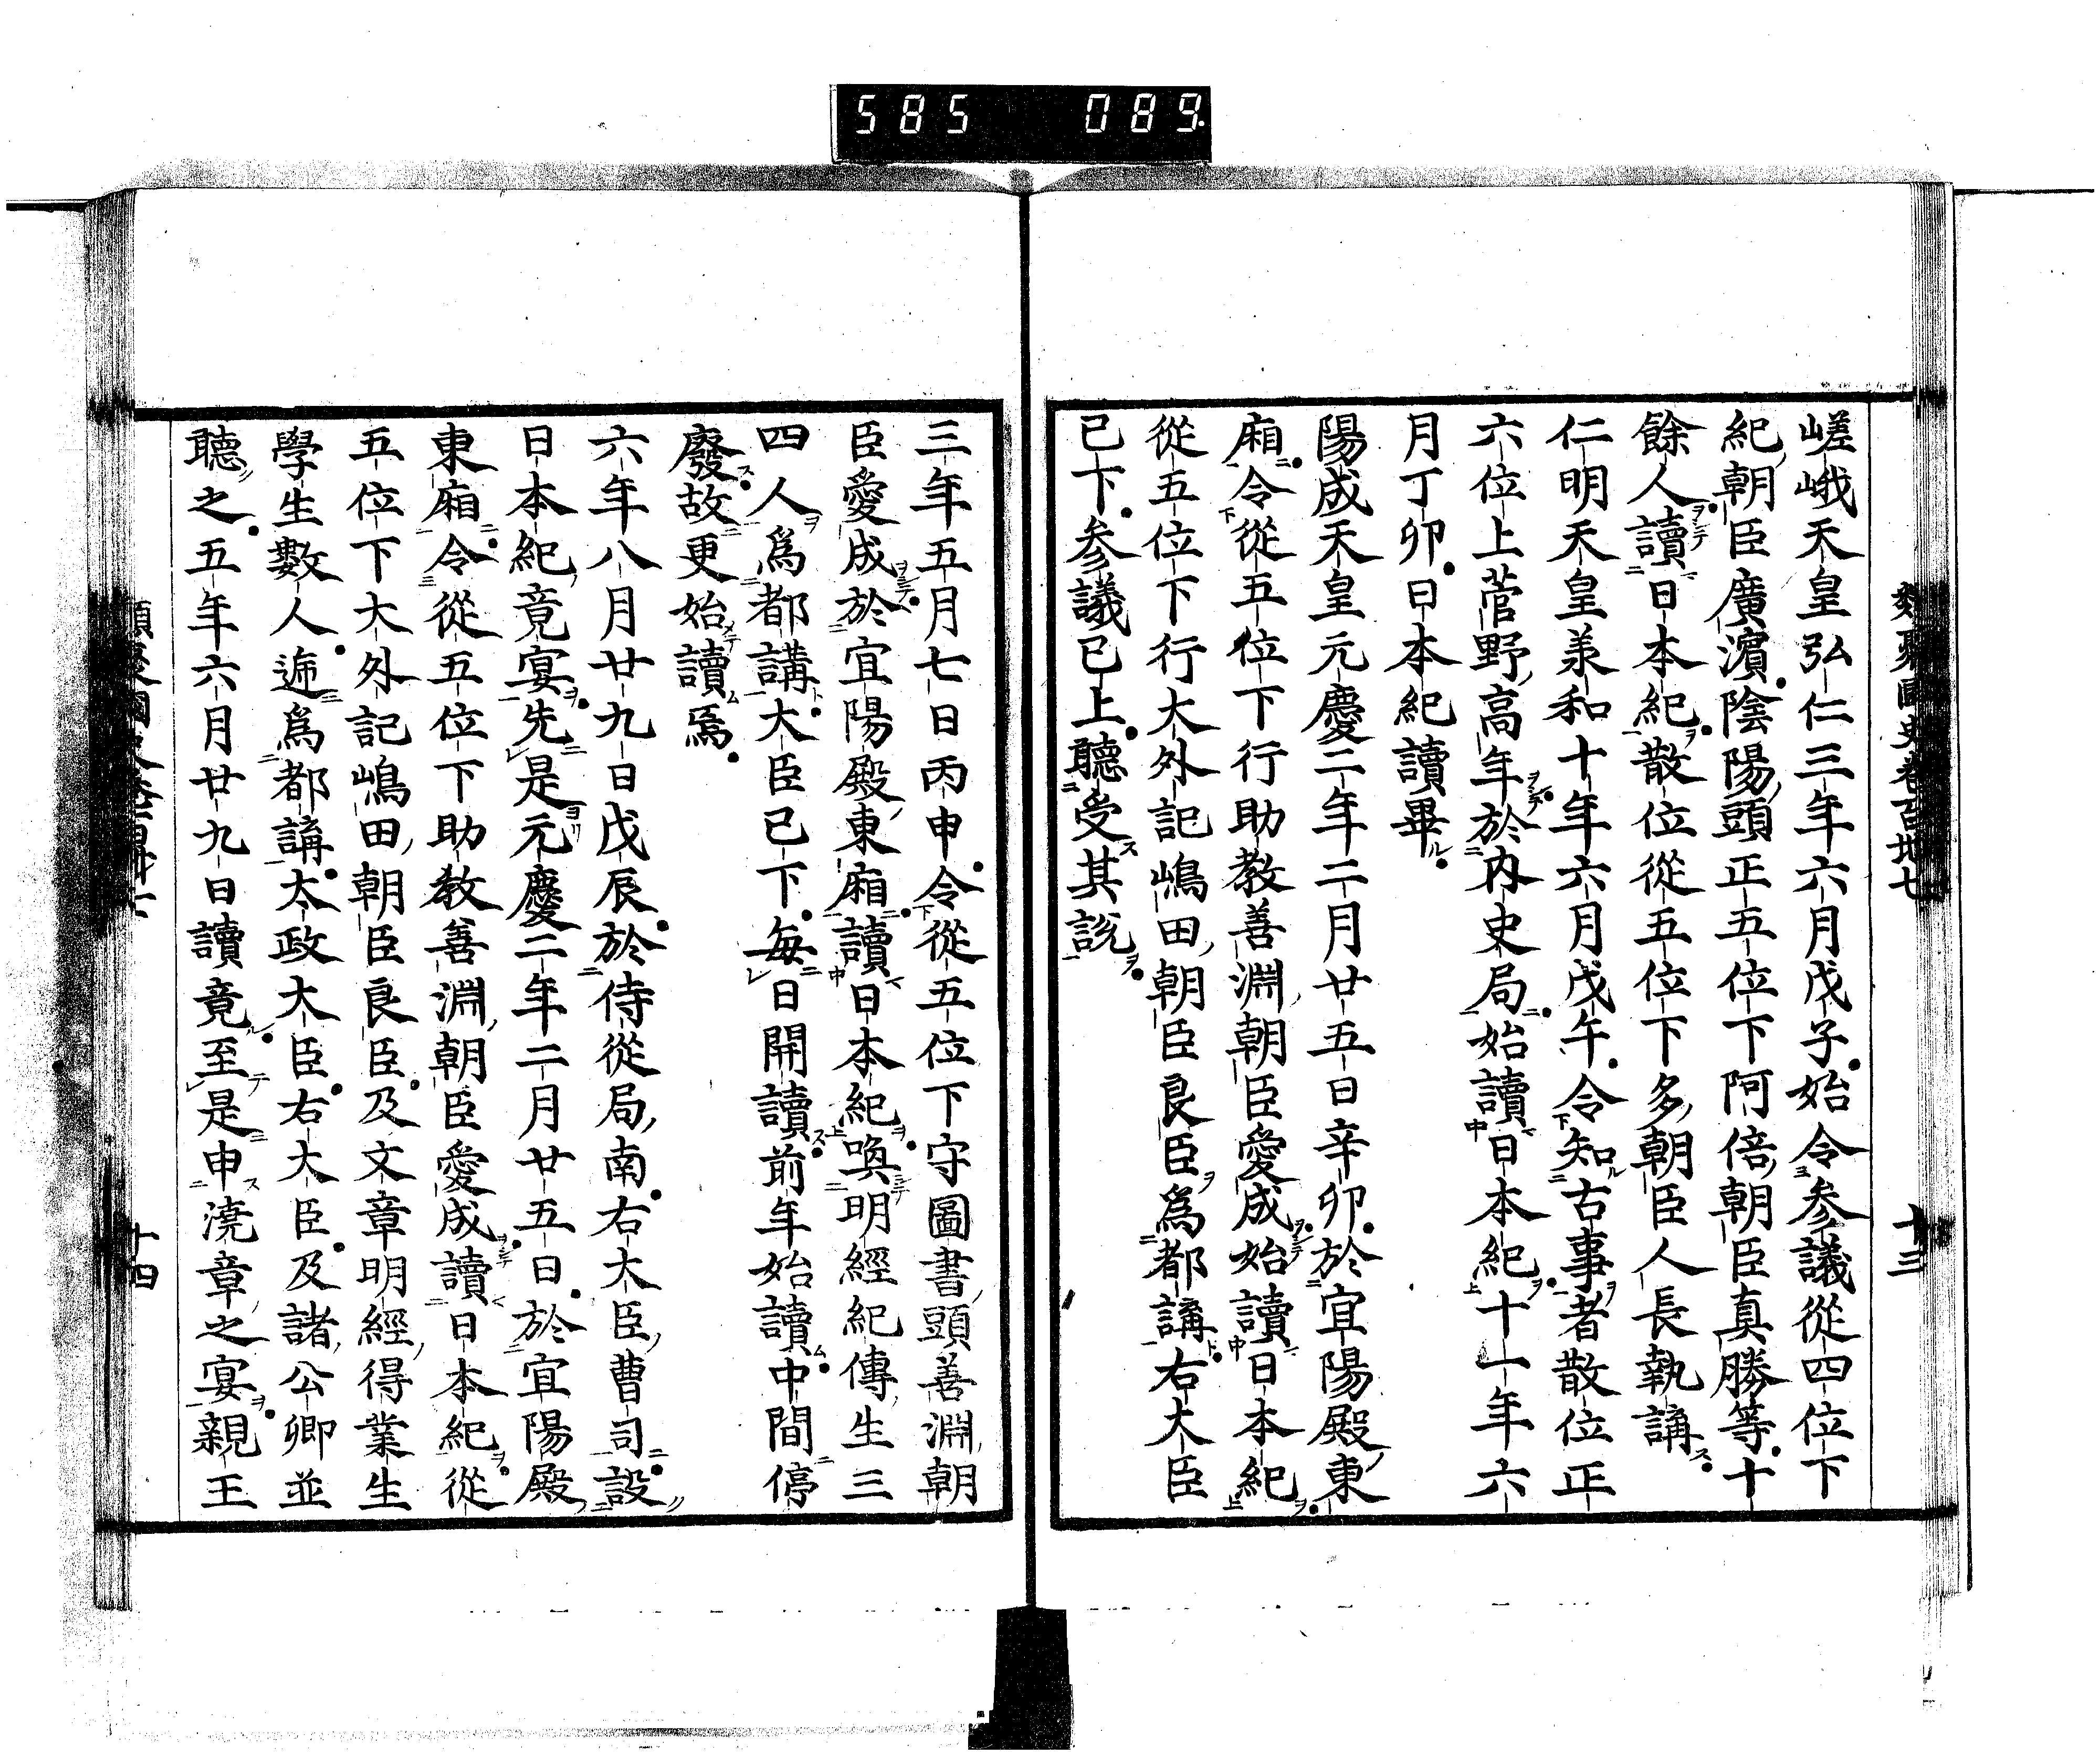 585 089
類聚國史卷百卌七 十三
嵯峨天皇弘仁三年六月戊子始令参議從四位下
紀朝臣廣濱陰陽頭正五位下阿倍朝臣真勝等十
餘人讀日本紀散位從五位下多朝臣人長執講
仁明天皇義和十年六月戊午令知古事者散位正
六位上菅野高年於內史局始讀日本紀十一年六
月丁卯日本紀讀畢
陽成天皇元慶二年二月廿五日辛卯於宜陽殿東
廂令從五位下行助教善淵朝臣愛成始讀日本紀
從五位下行大外記嶋田朝臣良臣爲都講右大臣
已下参議已上聽受其說
三年五月七日丙申令從五位下守圖書頭善淵朝
臣愛成於宜陽殿東廂讀日本紀喚明經紀傳生三
四人爲都講大臣已下每日開讀前年始讀中間停
廢故更始讀焉
六年八月廿九日戊辰於侍從局南右大臣曹司設
日本紀竟宴先是元慶二年二月廿五日於宜陽殿
東廂令從五位下助教善淵朝臣愛成讀日本紀從
五位下大外記嶋田朝臣良臣及文章明經得業生
學生數人遞爲都講太政大臣右大臣及諸公卿並
聽之五年六月廿九日讀竟至是申澆章之宴親王
十四